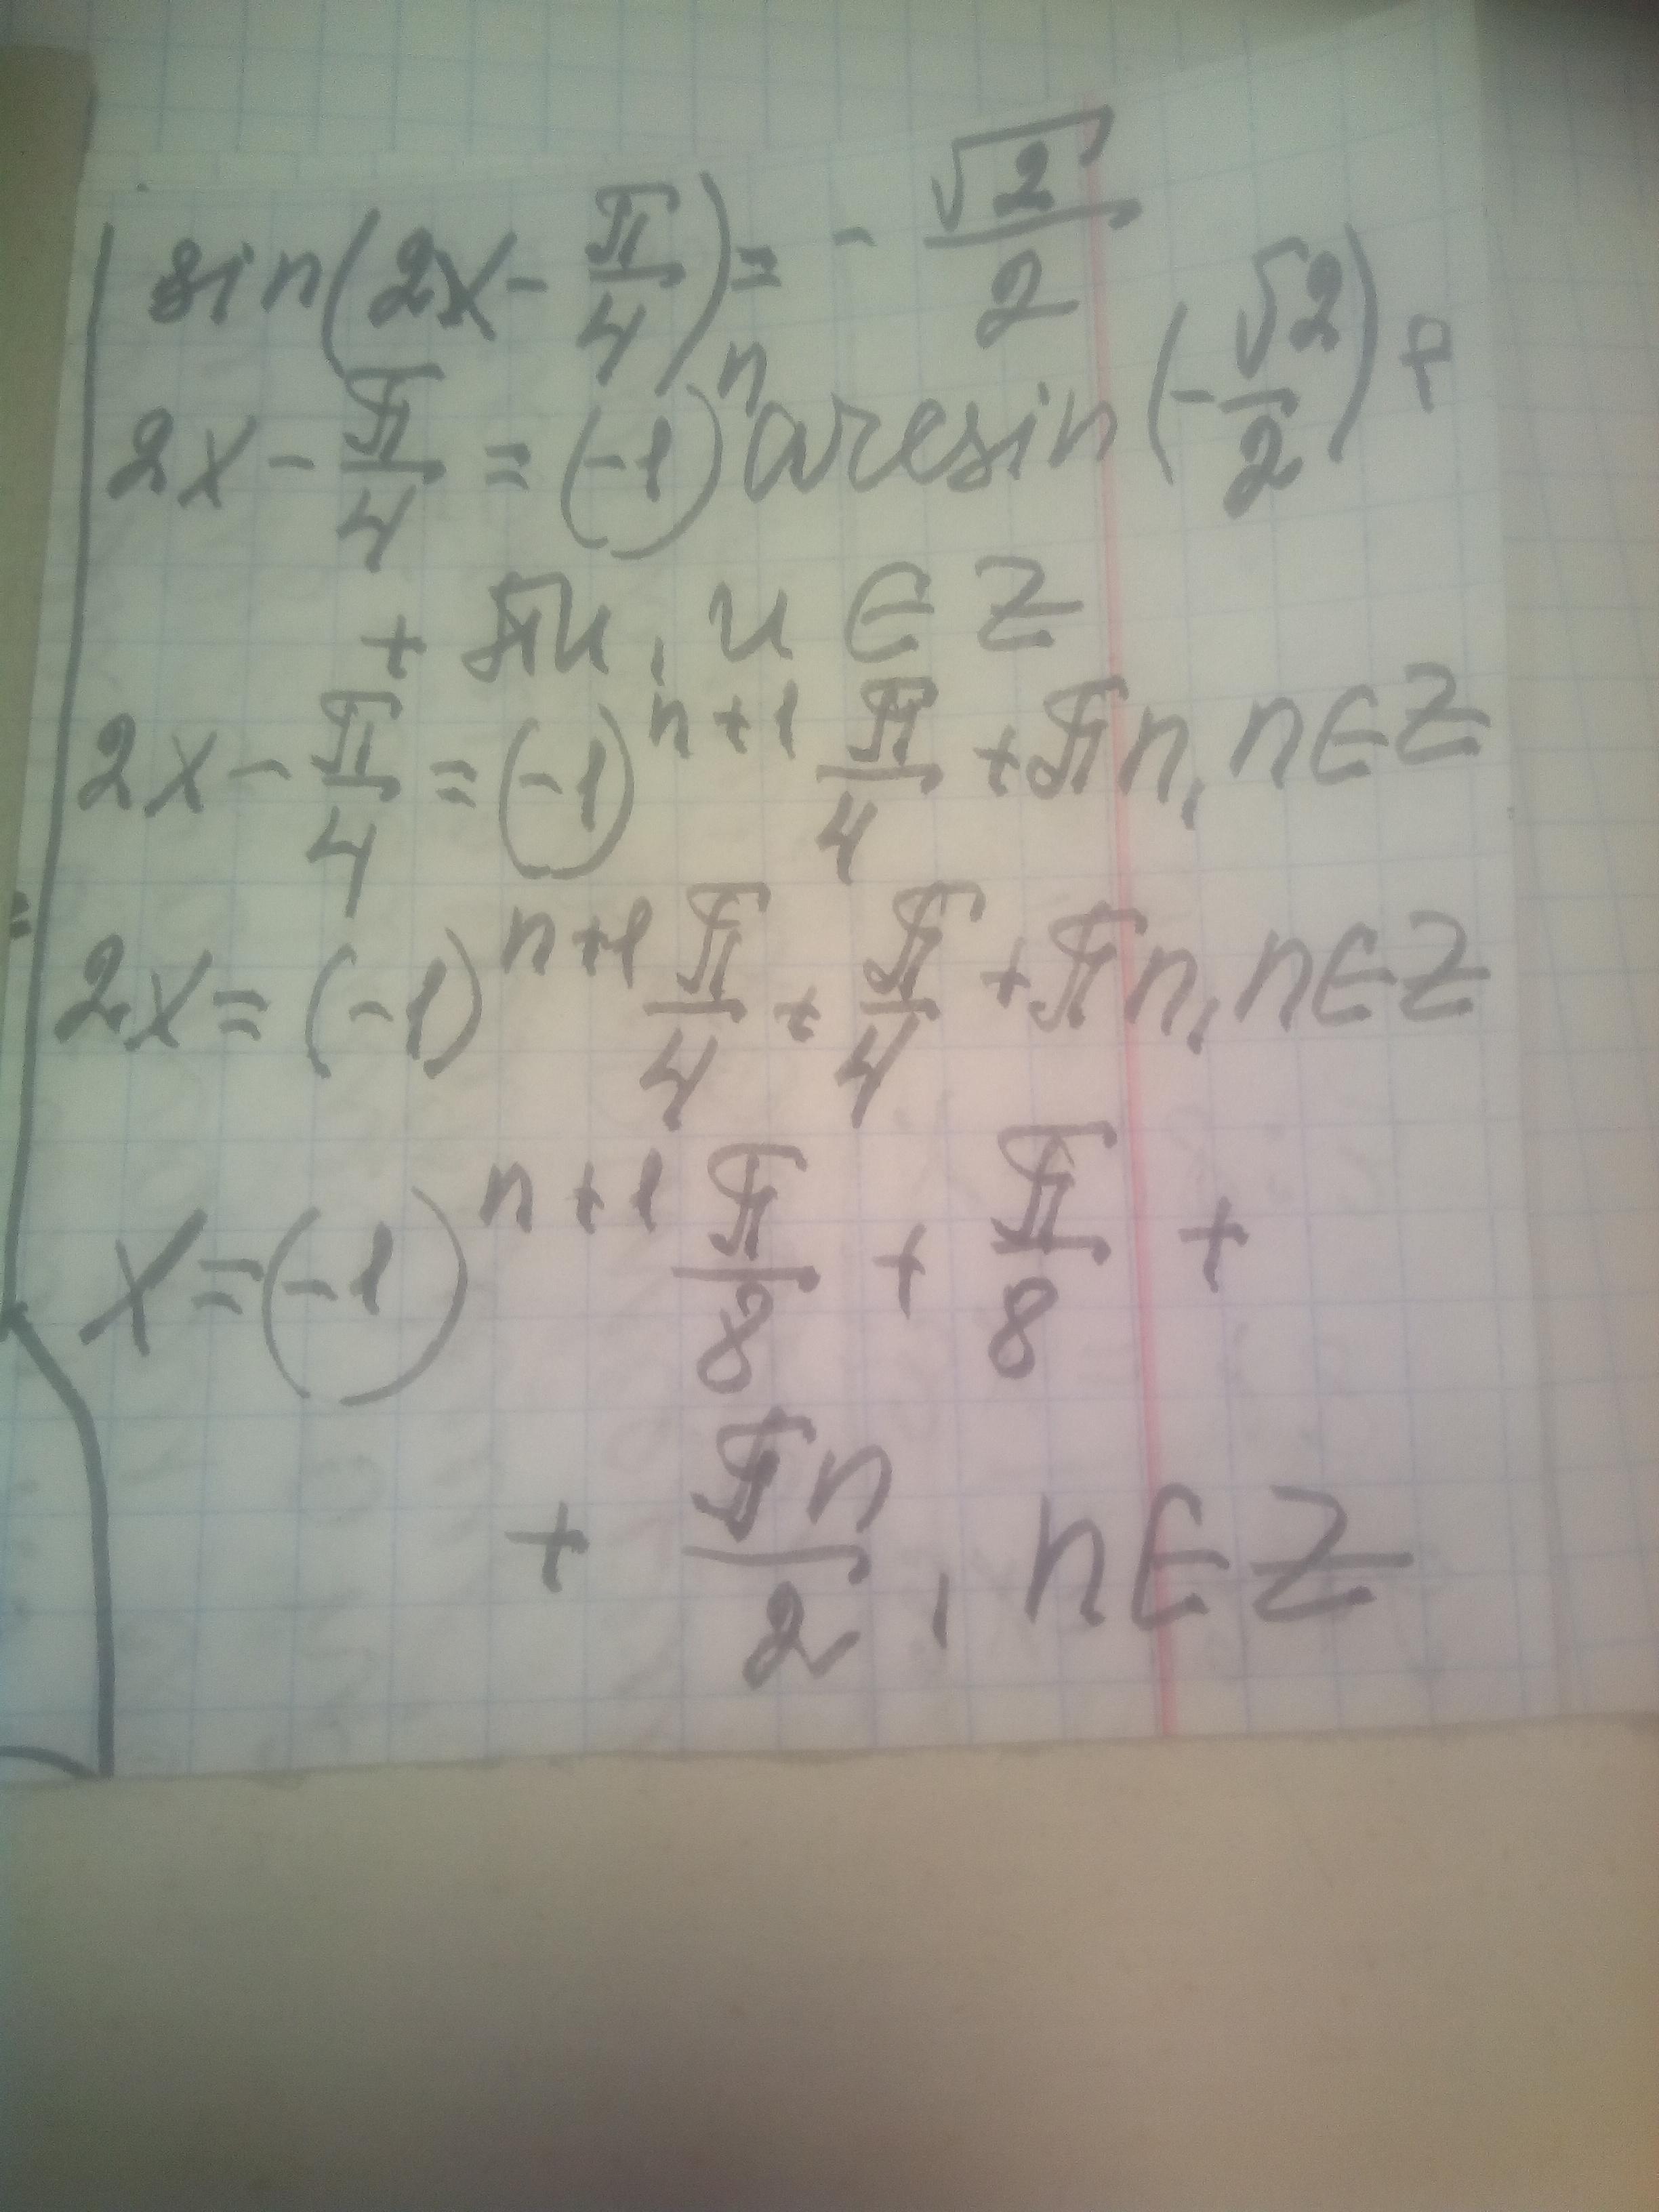 sin(2x - π/4) = - √2/2
2x - π/4 = (-1)^n arcsin(-√2/2) +
+ πn, n ∈ Z
2x - π/4 = (-1)^(n+1) π/4 + πn, n ∈ Z
2x = (-1)^(n+1) π/4 + π/4 + πn, n ∈ Z
x = (-1)^(n+1) π/8 + π/8 +
+ πn/2, n ∈ Z